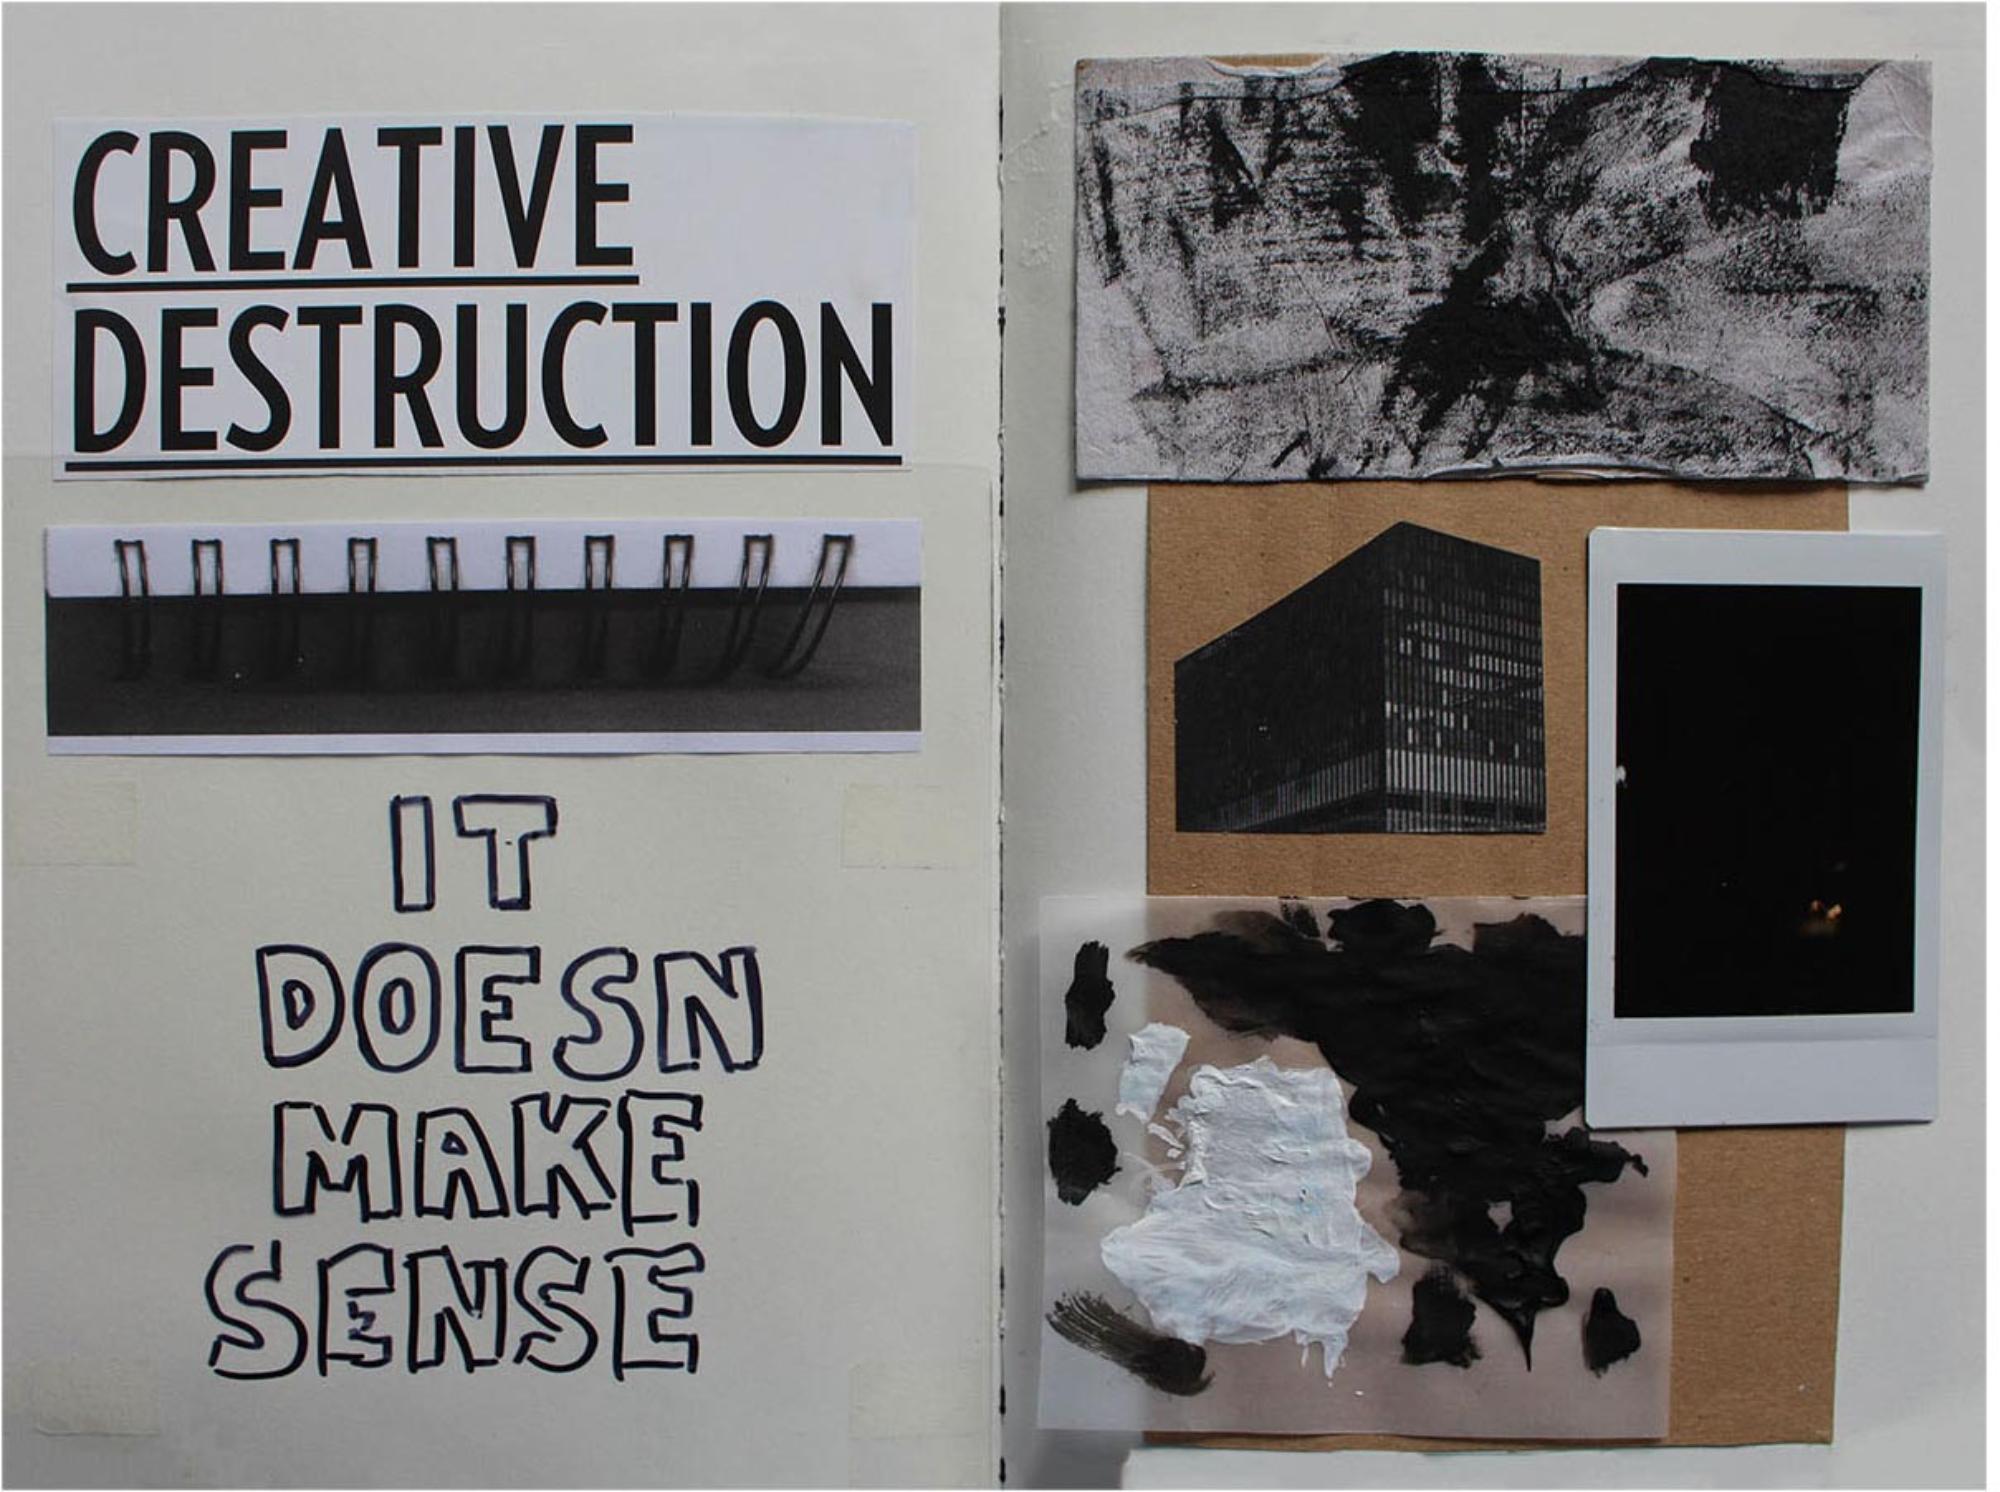 CREATIVE
DESTRUCTION
IT
DOESN
MAKE
SENSE